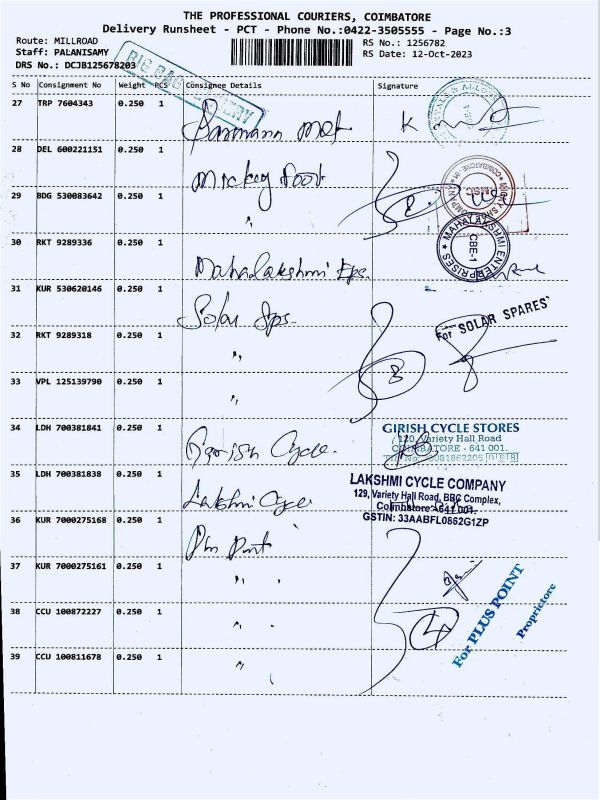 THE PROFESSIONAL COURIERS, COIMBATORE
Delivery Runsheet - PCT - Phone No.:0422-3505555 - Page No.:3
Route: MILLROAD
Staff: PALANISAMY
DRS No.: DCJB125678203
RS No.: 1256782
RS Date: 12-Oct-2023
BIG BAG DELIVERY
S No Consignment No Weight PCS Consignee Details Signature
27 TRP 7604343 0.250 1
28 DEL 600221151 0.250 1
29 BDG 530083642 0.250 1 "
30 RKT 9289336 0.250 1 Mahalakshmi Eps.
MAHALAKSHMI ENTERPRISES
CBE-1
31 KUR 530620146 0.250 1 Solar Sps.
For SOLAR SPARES
32 RKT 9289318 0.250 1 "
33 VPL 125139790 0.250 1 "
34 LDH 700381841 0.250 1 Cycle.
GIRISH CYCLE STORES
120, Variety Hall Road
COIMBATORE - 641 001.
35 LDH 700381838 0.250 1 Lakshmi Cycle
LAKSHMI CYCLE COMPANY
129, Variety Hall Road, BBC Complex,
Coimbatore - 641 001.
GSTIN: 33AABFL0862G1ZP
36 KUR 7000275168 0.250 1
37 KUR 7000275161 0.250 1 " "
38 CCU 100872227 0.250 1 "
39 CCU 100811678 0.250 1 "
For PLUS POINT
Proprietore